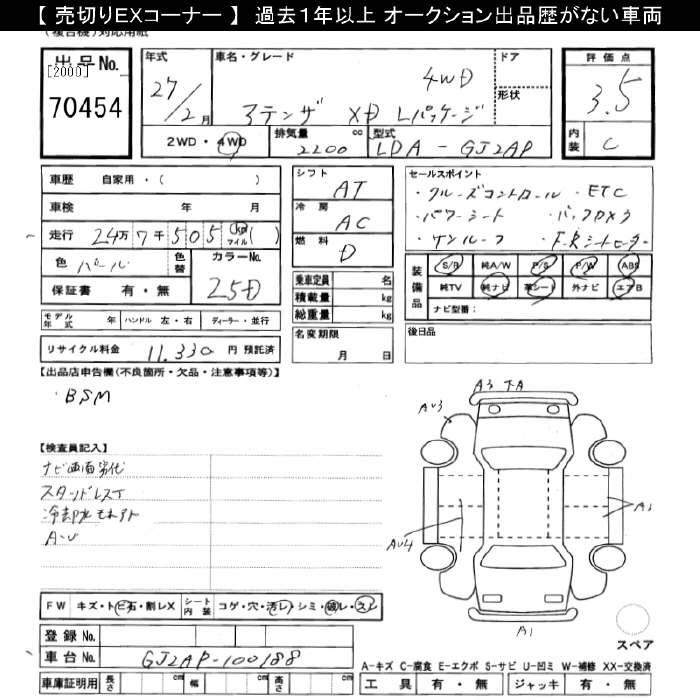 【 売切りEXコーナー 】 過去1年以上 オークション出品歴がない車両
(複合機)対応用紙
出品No.
[2000]
70454
年式
27/2月
車名・グレード
4WD
アテンザ XD Lパッケージ
ドア
形状
評価点
3.5
内装
C
2WD・4WD
排気量
2200 cc
型式
LDA-GJ2AP
車歴 自家用・( )
車検 年 月
走行 24万7千505 (km マイル) ( )
色 パール
色替
カラーNo.
25D
保証書 有・無
モデル年式 年 ハンドル 左・右 ディーラー・並行
リサイクル料金 11,330 円 預託済
シフト
AT
冷房
AC
燃料
D
乗車定員 名
積載量 kg
総重量 kg
名変期限
月 日
セールスポイント
・クルーズコントロール ・ETC
・パワーシート ・バックカメラ
・サンルーフ ・F.Rシートヒーター
装備品
S/R 純A/W P/S P/W ABS
純TV 純ナビ 革シート 外ナビ エアB
ナビ型番:
後日品
【出品店申告欄(不良箇所・欠品・注意事項等)】
・BSM
【検査員記入】
ナビ画面劣化
スタッドレスT
冷却水モレアト
A-U
A3 下A
AU3
AU4
A1
A1
FW キズ・トビ石・割レX
シート内装 コゲ・穴・汚レ・シミ・破レ・スレ
登録No.
車台No. GJ2AP-100188
車庫証明用 長さ cm 幅 cm 高さ cm
スペア
A-キズ C-腐食 E-エクボ S-サビ U-凹ミ W-補修 XX-交換済
工具 有・無 ジャッキ 有・無